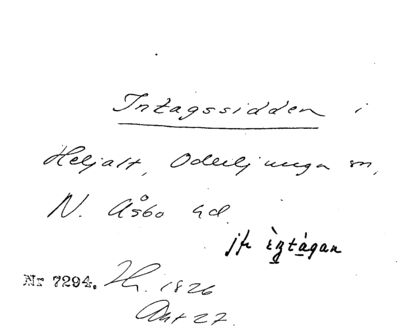 Intagssidden i
Heljalt, Oderljunga sn,
N. Åsbo hd.
jfr ègtágan
Nr 7294. Hr. 1826
Ant 27.